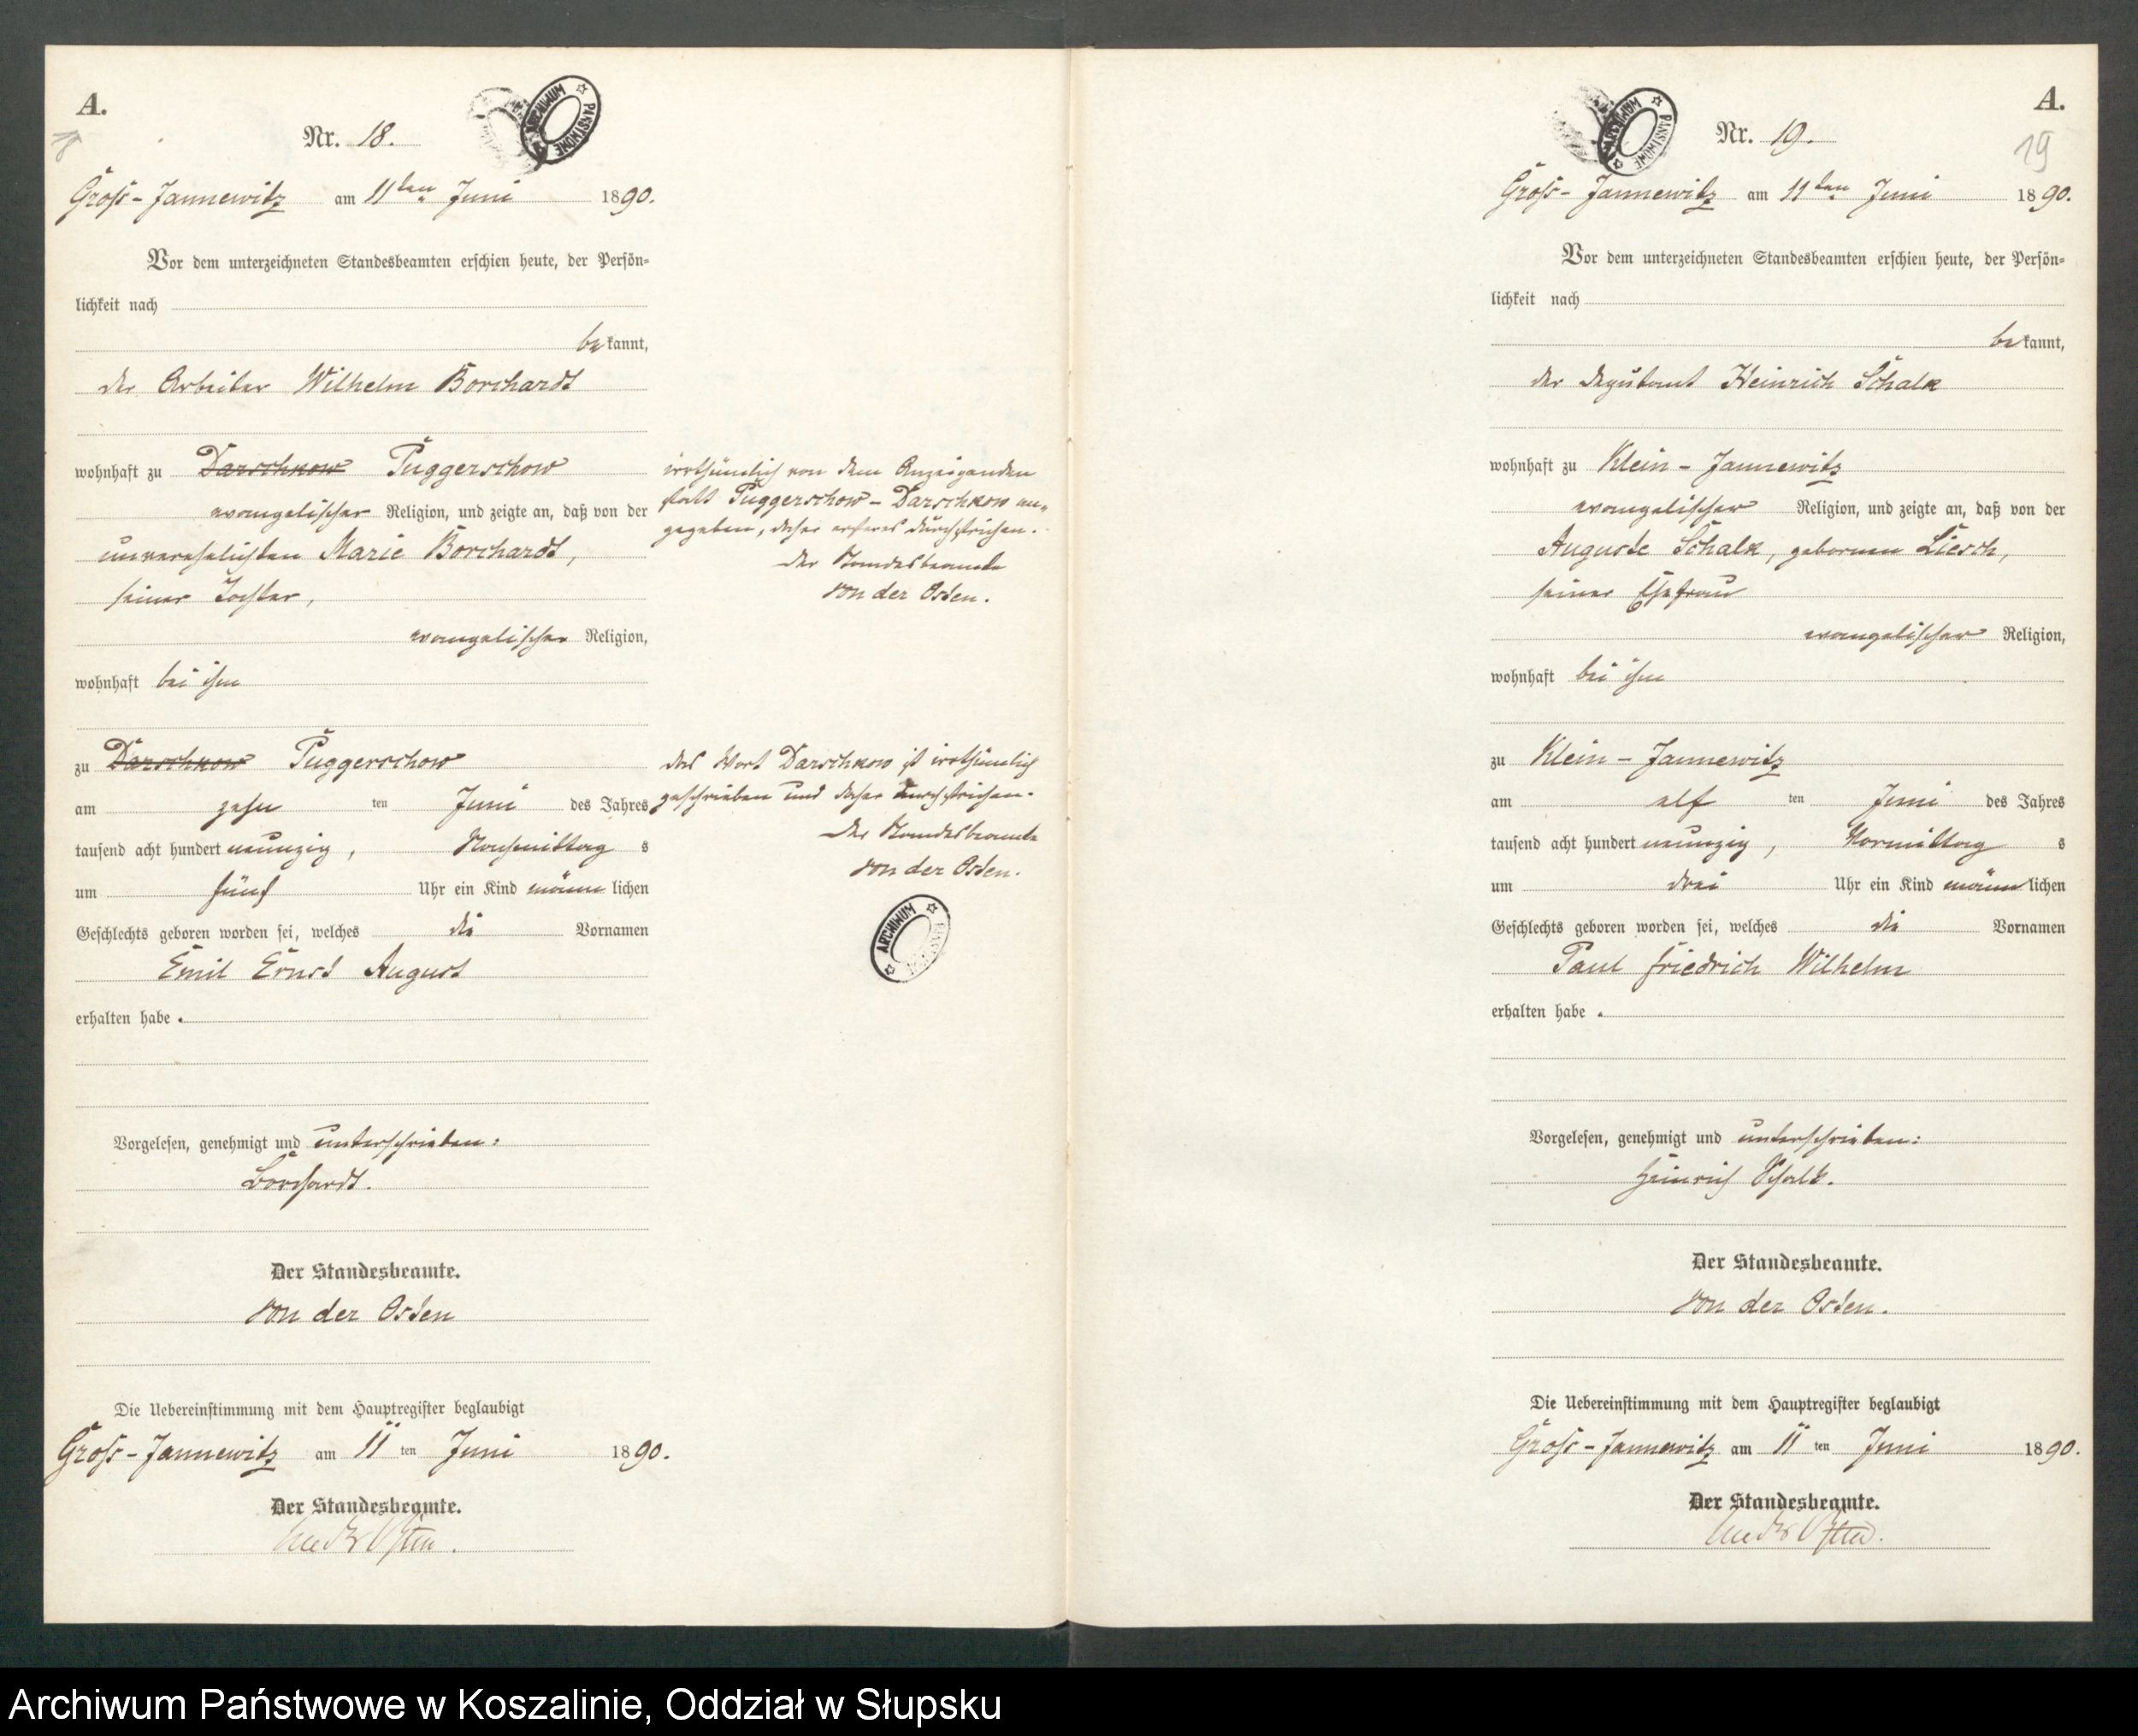 A.
Nr. 18.
ARCHIWUM PAŃSTWOWE
Gross-Jannewitz am 11ten Juni 1890.
Vor dem unterzeichneten Standesbeamten erschien heute, der Persön-
lichkeit nach
bekannt,
der Arbeiter Wilhelm Borchardt
wohnhaft zu Darschkow Puggerschow
evangelischer Religion, und zeigte an, daß von der
unverehelichten Marie Borchardt,
seiner Tochter,
evangelischer Religion,
wohnhaft bei ihm
zu Darschkow Puggerschow
am zehn ten Juni des Jahres
tausend acht hundert neunzig, Nachmittag s
um fünf Uhr ein Kind männlichen
Geschlechts geboren worden sei, welches die Vornamen
Emil Ernst August
erhalten habe.
Vorgelesen, genehmigt und unterschrieben:
Borchardt.
Der Standesbeamte.
von der Osten
Die Uebereinstimmung mit dem Hauptregister beglaubigt
Gross-Jannewitz am 11 ten Juni 1890.
Der Standesbeamte.
von der Osten.
irrthümlich von dem Anzeigenden
statt Puggerschow - Darschkow an-
gegeben, daher ersteres durchstrichen.
Der Standesbeamte
von der Osten.
das Wort Darschkow ist irrthümlich
geschrieben und daher durchstrichen.
Der Standesbeamte
von der Osten.
ARCHIWUM
A.
19
Nr. 19.
ARCHIWUM PAŃSTWOWE
Gross-Jannewitz am 11ten Juni 1890.
Vor dem unterzeichneten Standesbeamten erschien heute, der Persön-
lichkeit nach
bekannt,
der Deputant Heinrich Schalk
wohnhaft zu Klein-Jannewitz
evangelischer Religion, und zeigte an, daß von der
Auguste Schalk, geborenen Liesch,
seiner Ehefrau
evangelischer Religion,
wohnhaft bei ihm
zu Klein-Jannewitz
am elf ten Juni des Jahres
tausend acht hundert neunzig, Vormittag s
um drei Uhr ein Kind männlichen
Geschlechts geboren worden sei, welches die Vornamen
Paul Friedrich Wilhelm
erhalten habe.
Vorgelesen, genehmigt und unterschrieben:
Heinrich Schalk.
Der Standesbeamte.
von der Osten.
Die Uebereinstimmung mit dem Hauptregister beglaubigt
Gross-Jannewitz am 11 ten Juni 1890.
Der Standesbeamte.
von der Osten.
Archiwum Państwowe w Koszalinie, Oddział w Słupsku